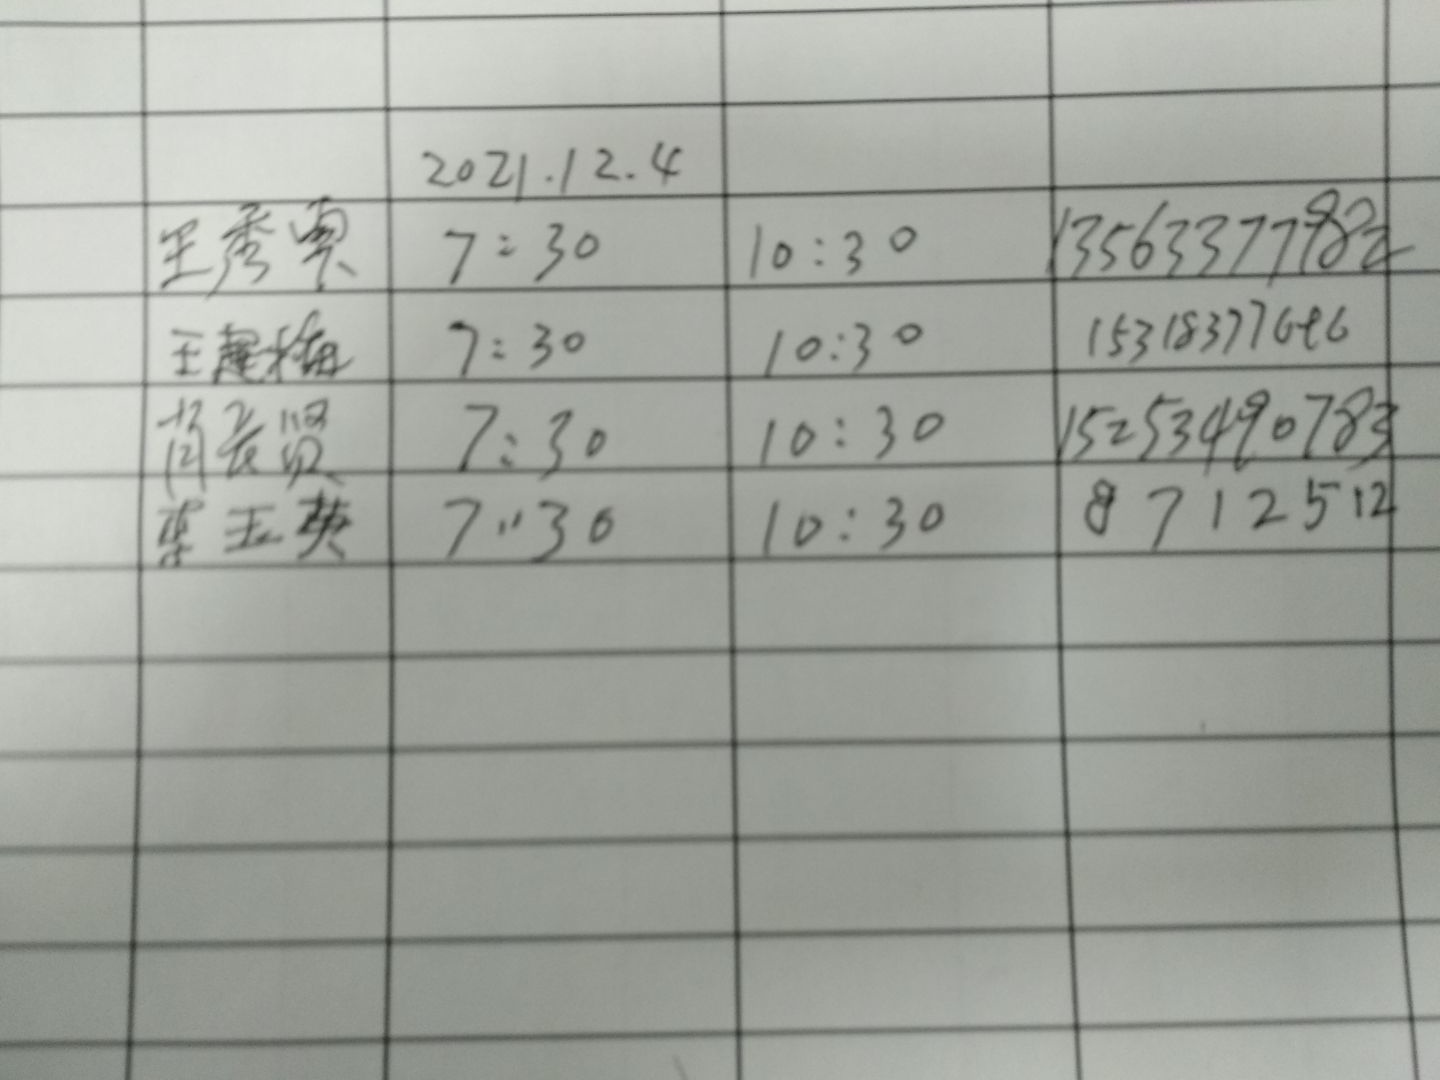 2021.12.4
王秀 7:30 10:30 13563377982
王建梅 7:30 10:30 15318377646
肖长贤 7:30 10:30 15253490783
玉英 7:30 10:30 8712512